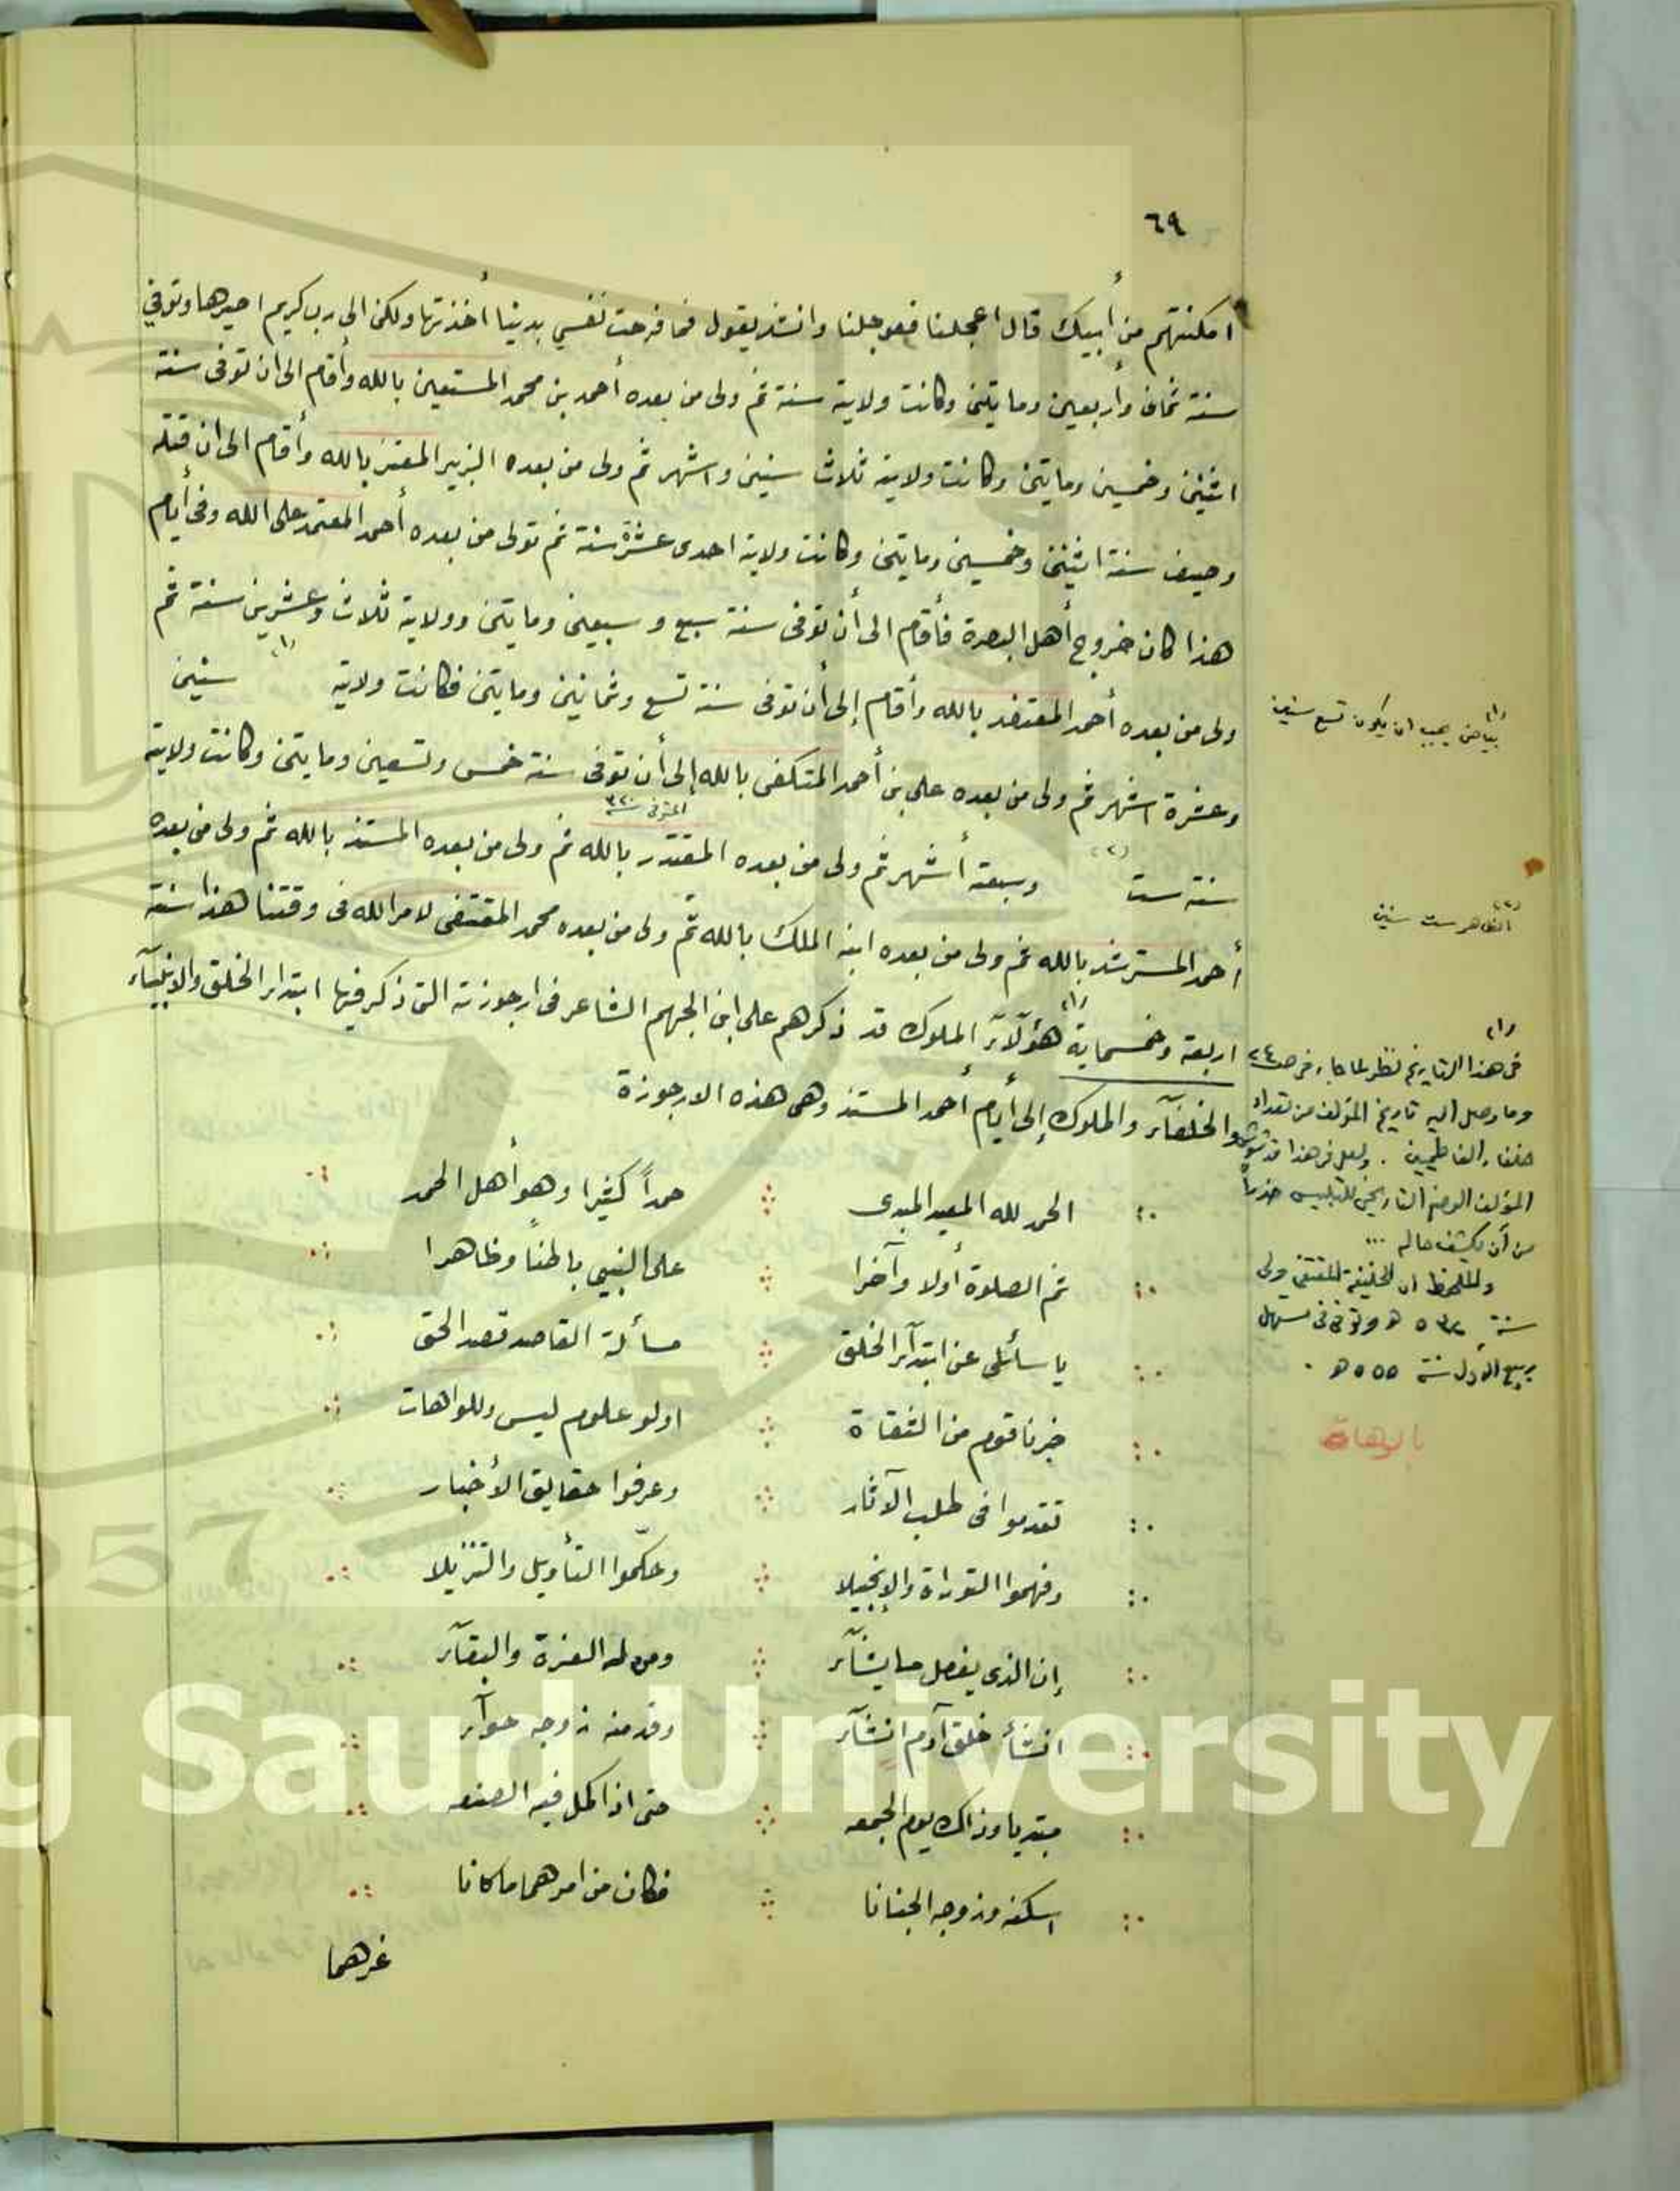 ٦٩
أمكنتهم من أبيك قال اعجلنا فعوجلنا وانشد يقول فما فرحت نفسي بدينا أخذتها ولكن الى رب كريم اصيرها وتوفي
سنة ثمان وأربعين ومايتين وكانت ولايته سنة ثم ولى من بعده أحمد بن محمد المستعين بالله وأقام الى ان توفى سنة
اثنين وخمسين ومايتين وكانت ولايته ثلاث سنين واشهر ثم ولى من بعده الزبير المعتز بالله وأقام الى ان قتله
وصيف سنة اثنين وخمسين ومايتين وكانت ولايته احدى عشرة سنة ثم تولى من بعده أحمد المعتمد على الله وفى أيام
هذا كان خروج أهل البصرة فأقام الى أن توفى سنة سبع وسبعين ومايتين وولايته ثلاث وعشرين سنة ثم
ولى من بعده أحمد المعتضد بالله وأقام إلى أن توفى سنة تسع وثمانين ومايتين فكانت ولايته (١) سنين
وعشرة اشهر ثم ولى من بعده علي بن أحمد المتكفى بالله إلى أن توفى سنة خمس وتسعين ومايتين وكانت ولايته
المتوفى سنة ٣٢٠
سنة ست (٢) وسبعة أشهر ثم ولى من بعده المقتدر بالله ثم ولى من بعده المستند بالله ثم ولى من بعده
أحمد المسترشد بالله ثم ولى من بعده ابنه الملك بالله ثم ولى من بعده محمد المقتفى لامر الله فى وقتنا هذا سنة
اربعة وخمسماية (١) هؤلآء الملوك قد ذكرهم على ابن الجهم الشاعر فى ارجوزته التى ذكر فيها ابتداء الخلق والانبيآء
والخلفآء والملوك إلى أيام أحمد المستند وهى هذه الارجوزة
الحمد لله المعيد المبدى حمداً كثيرا وهو أهل الحمد
ثم الصلوة أولا وآخرا على النبي باطناً وظاهرا
يا سائلى عن ابتدآء الخلق مسألة القاصد قصد الحق
خبرنا قوم من الثقاة اولو علوم ليس وللواهات
تقدموا فى طلب الآثار وعرفوا حقايق الأخبار
وفهموا التوراة والإنجيلا وحكّموا التأويل والتنزيلا
إن الذى يفصل ما يشآء ومن له العزة والبقآء
انشأ خلق آدم انشآء وقد منه زوجه حوآء
مبتديا وذاك يوم الجمعه حتى اذا اكمل فيه الصنعه
اسكنه وزوجه الجنانا فكان من امرهما ماكانا
غرهما
(١)
بياض يجب ان يكون تسع سنين
(٢)
الظاهر ست سنين
(١)
فى هذا التاريخ نظر لما جاء فى ص ٢٤
وما وصل اليه تاريخ المؤلف من تعداد
خلفاء الفاطميين . ولعل فى هذا قد شوش
المؤلف الوضع التاريخى للتلبيس حذراً
من أن يكشف حاله ...
والملاحظ ان الخليفة المقتفى ولى
سنة ٥٣٠ هـ وتوفى فى مستهل
ربيع الأول سنة ٥٥٥ هـ .
بالرهات
King Saud University
1957